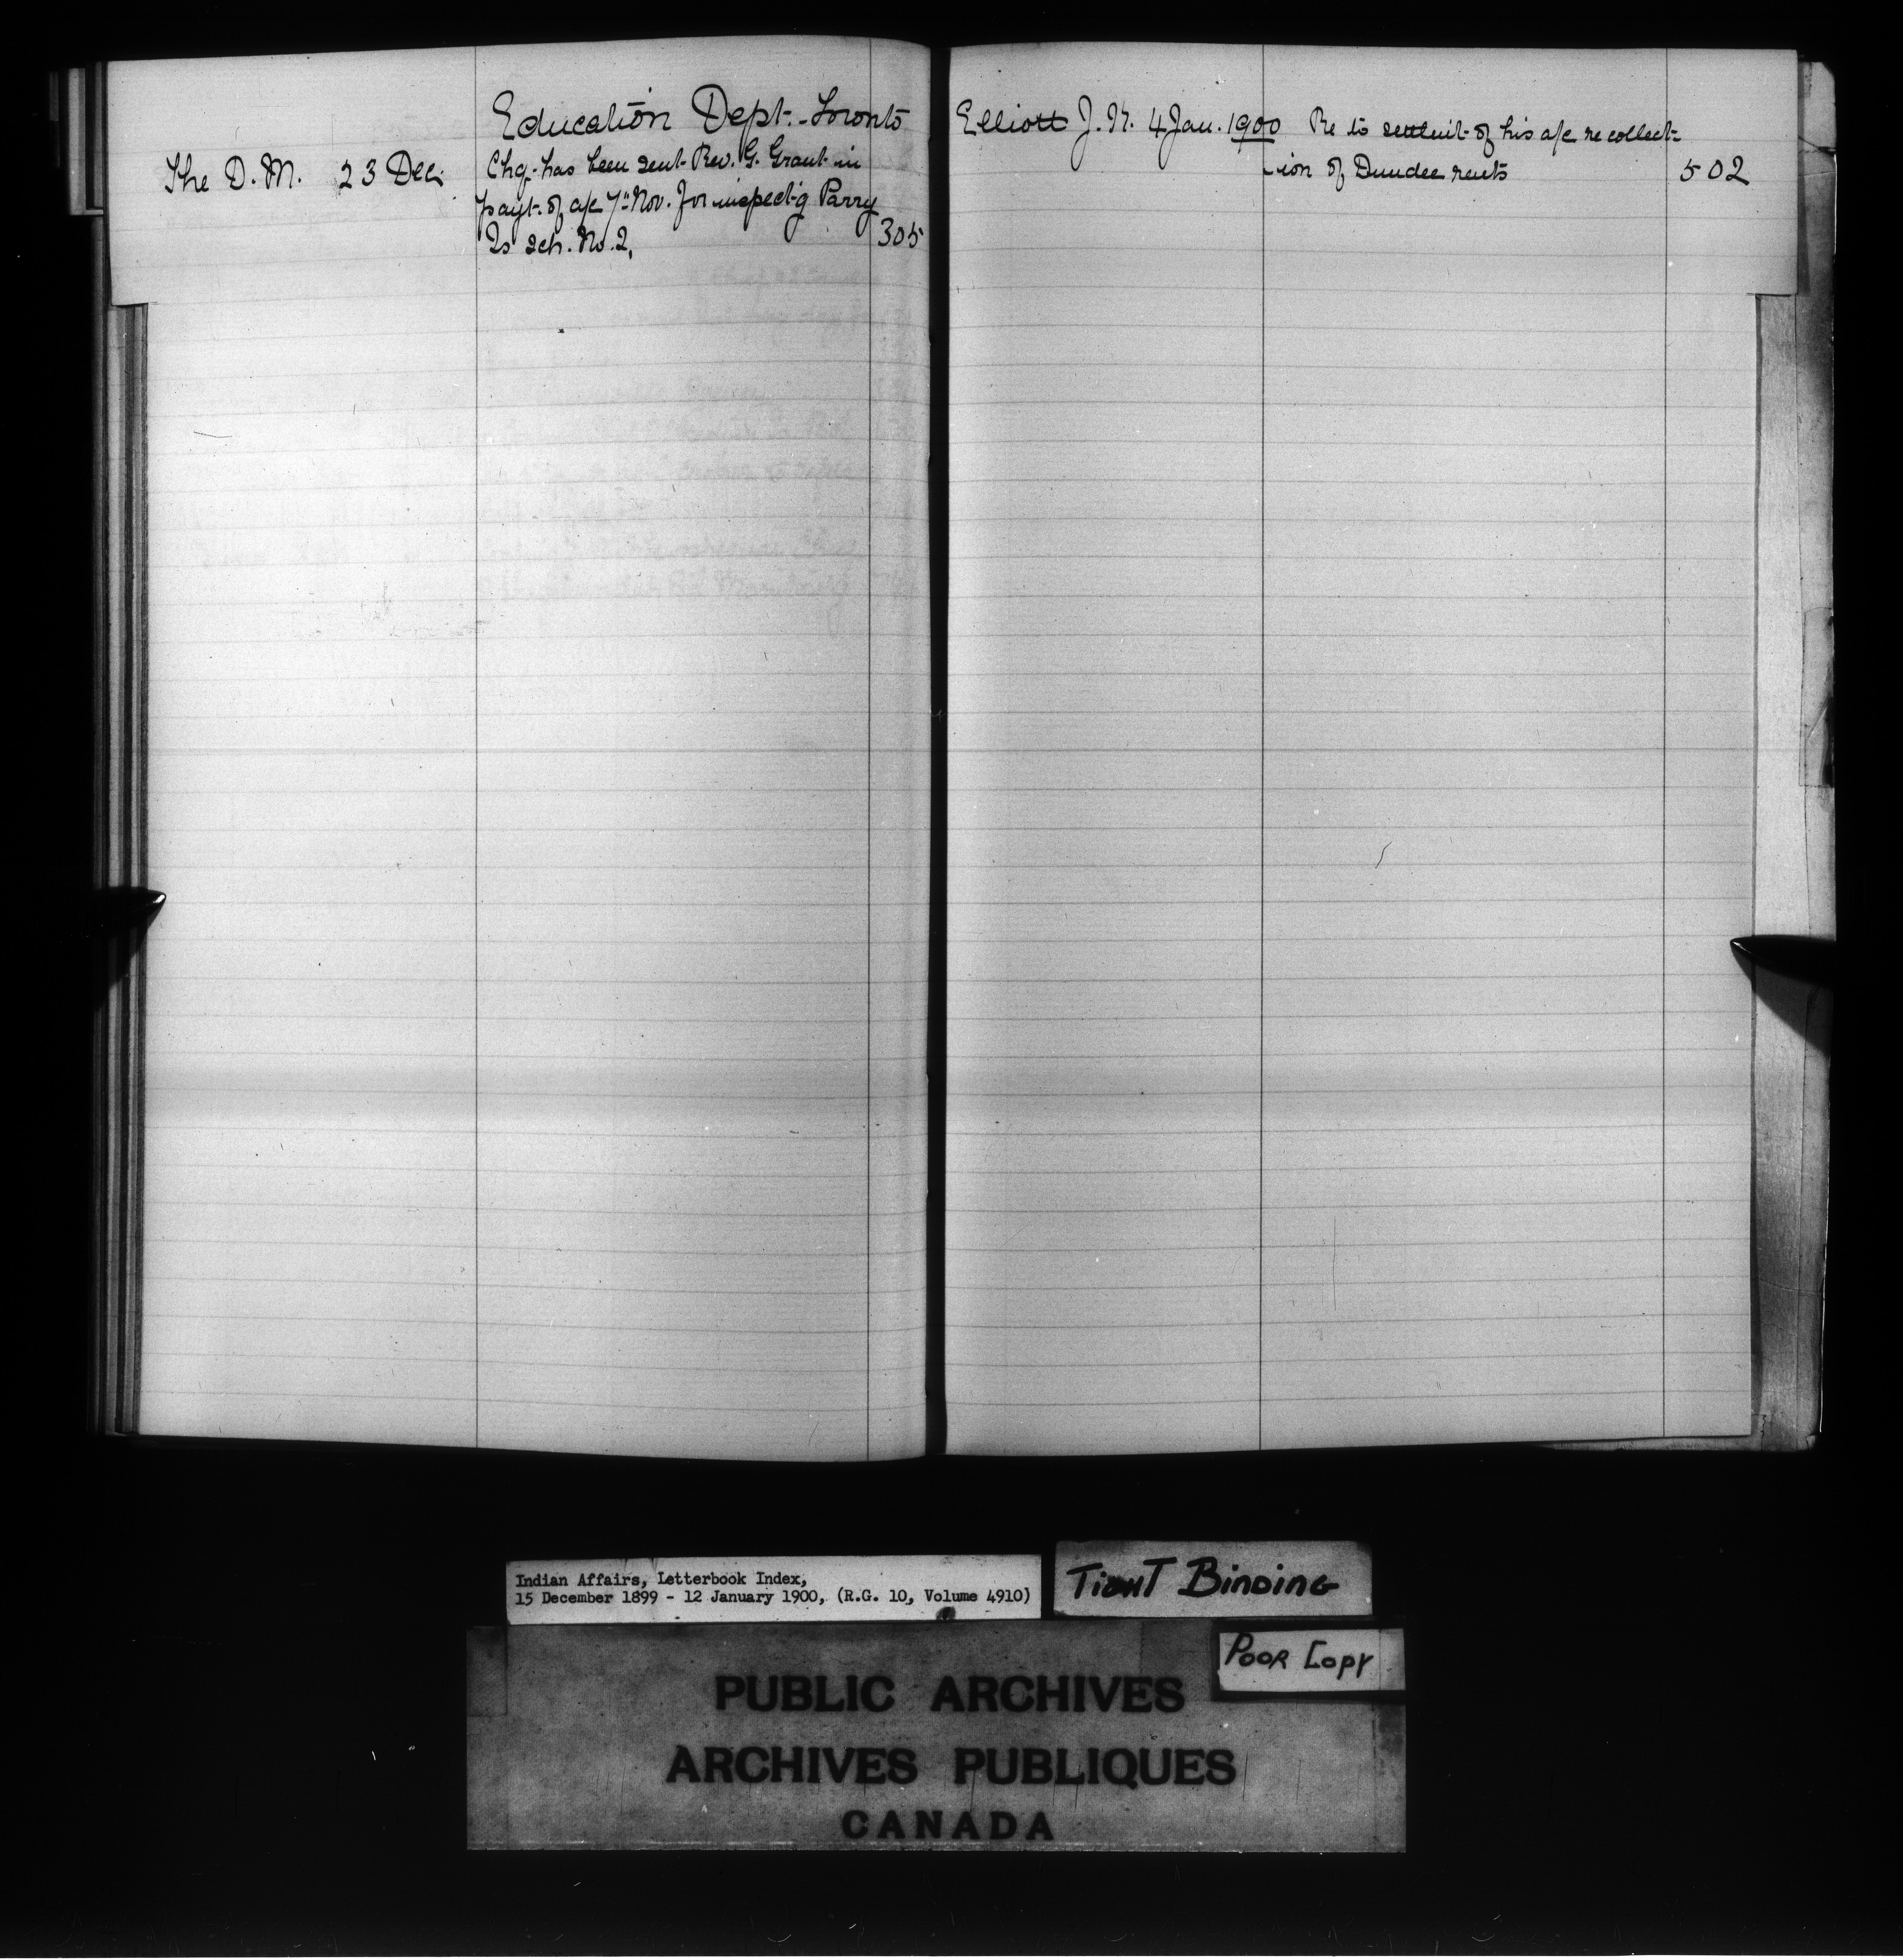 Education Dept. - Toronto
The D. M. 23 Dec. Chq. has been sent Rev. G. Grant in
payt. of a/c 7" Nov. for inspect-g Parry
Is sch. No. 2, 305
Elliott J. K. 4 Jan. 1900 Re to settlmit of his a/c re collect-
-ion of Dundee rents 502
Indian Affairs, Letterbook Index,
15 December 1899 - 12 January 1900, (R.G. 10, Volume 4910)
TIGHT BINDING
POOR COPY
PUBLIC ARCHIVES
ARCHIVES PUBLIQUES
CANADA